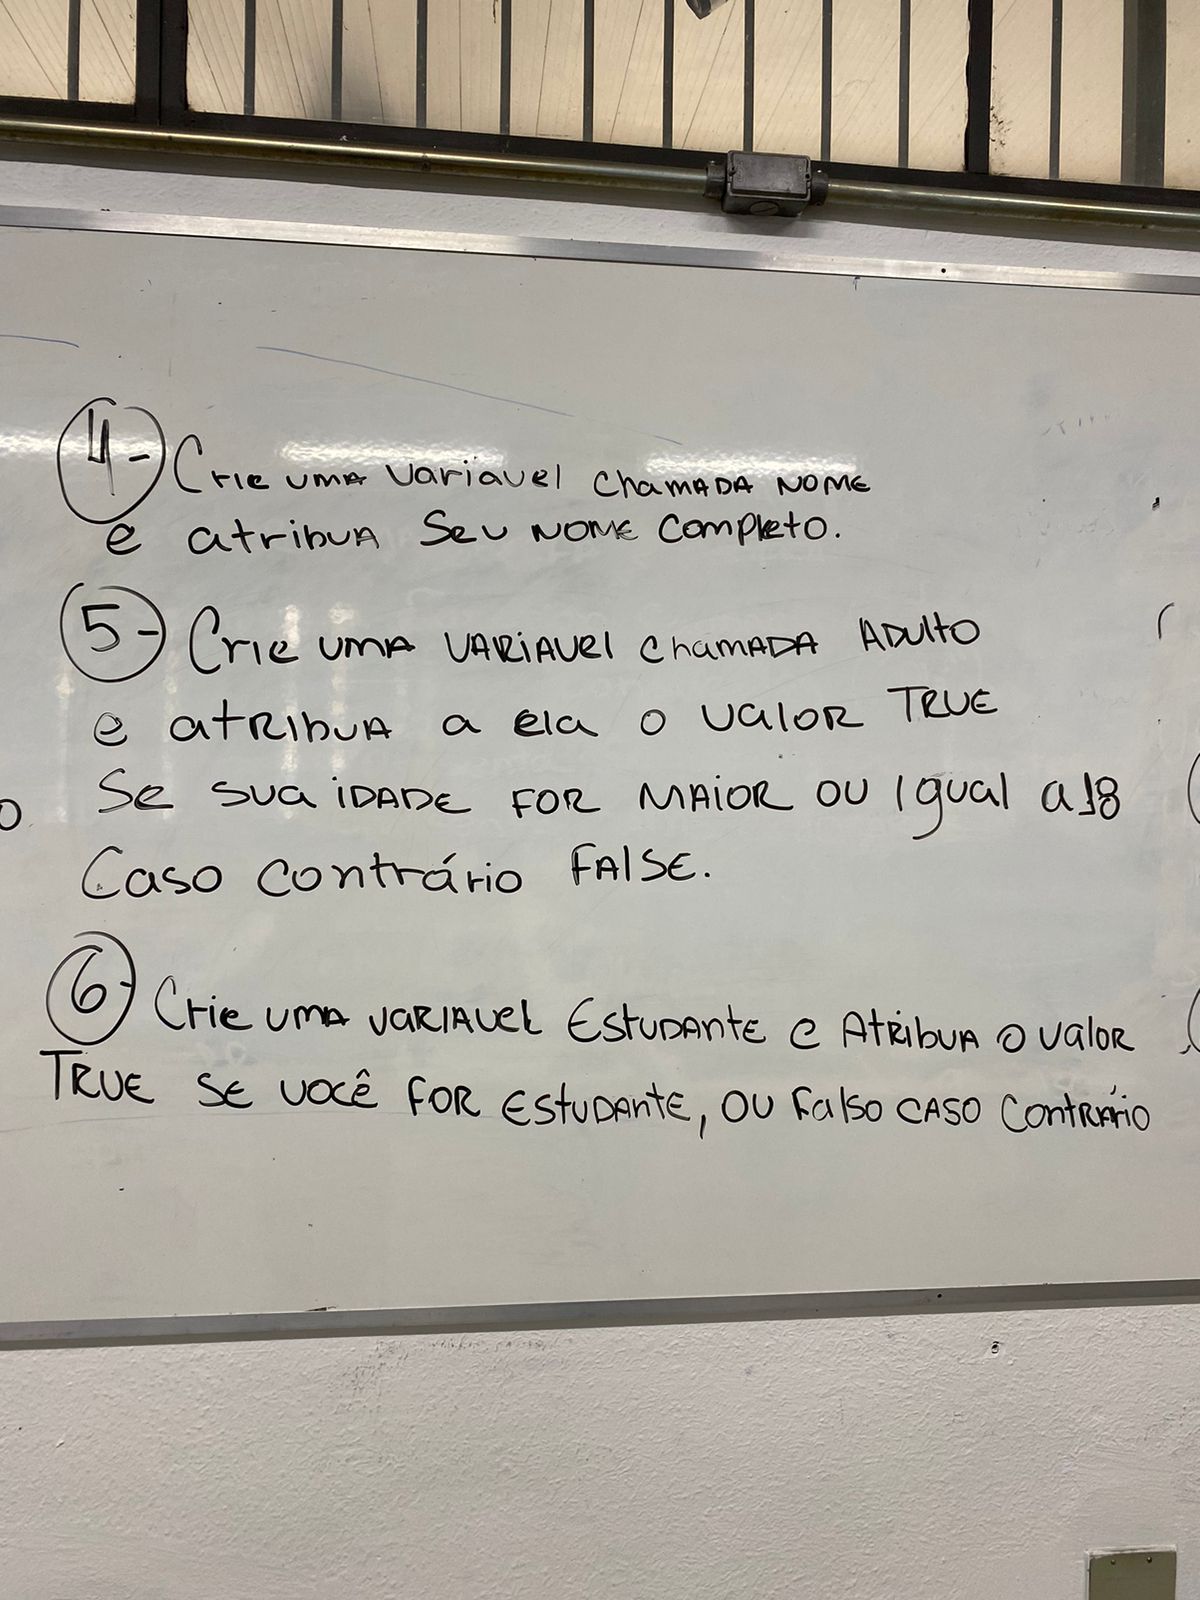 4- Crie uma variavel chamada nome
e atribua seu nome completo.
5- Crie uma variavel chamada adulto
e atribua a ela o valor TRUE
se sua idade for maior ou igual a 18
caso contrário FALSE.
6- Crie uma variavel Estudante e atribua o valor
TRUE se você for estudante, ou falso caso contrário